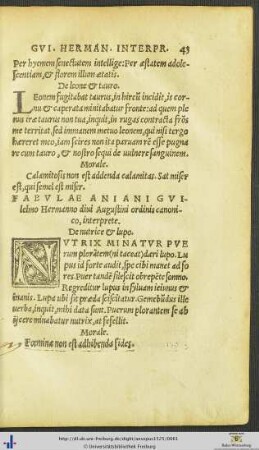 GVI. HERMAN. INTERPR. 43
Per hyemem senectutem intellige: Per æstatem adole-
scentiam, & florem illum ætatis.
De leone & tauro.
LEonem fugitabat taurus, in hircū incidit, is cor-
nu & caperata minitabatur fronte: ad quem ple-
nus iræ taurus non tua, inquit, in rugas contracta frōs
me territat, sed immanem metuo leonem, qui nisi tergo
hæreret meo, iam scires non ita paruam rē esse pugna
re cum tauro, & nostro sequi de uulnere sanguinem.
Morale.
Calamitosis non est addenda calamitas. Sat miser
est, qui semel est miser.
FABVLAE ANIANI GVI
lielmo Hermanno diui Augustini ordinis canoni-
co, interprete.
De nutrice & lupo.
NVTRIX MINATVR PVE
rum plorātem (ni taceat) dari lupo. Lu
pus id forte audit, spe cibi manet ad fo
res. Puer tandē silescit obrepēte somno.
Regreditur lupus in syluam ieiunus &
inanis. Lupa ubi sit præda sciscitatur. Gemebūdus ille
uerba, inquit, mihi data sunt. Puerum plorantem se ab
ijcere minabatur nutrix, at fefellit.
Morale.
Fœminæ non est adhibenda fides.
http://dl.ub.uni-freiburg.de/diglit/aesopus1521/0043
© Universitätsbibliothek Freiburg
Baden-Württemberg